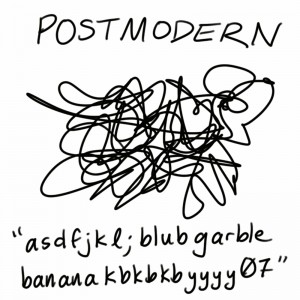 POSTMODERN
"asdfjkl;blubgarble
bananakbkbkbyyyy07"